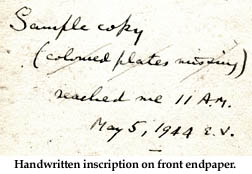 Sample copy
(coloured plates missing)
reached me 11 A.M.
May 5, 1944 e.v.
Handwritten inscription on front endpaper.